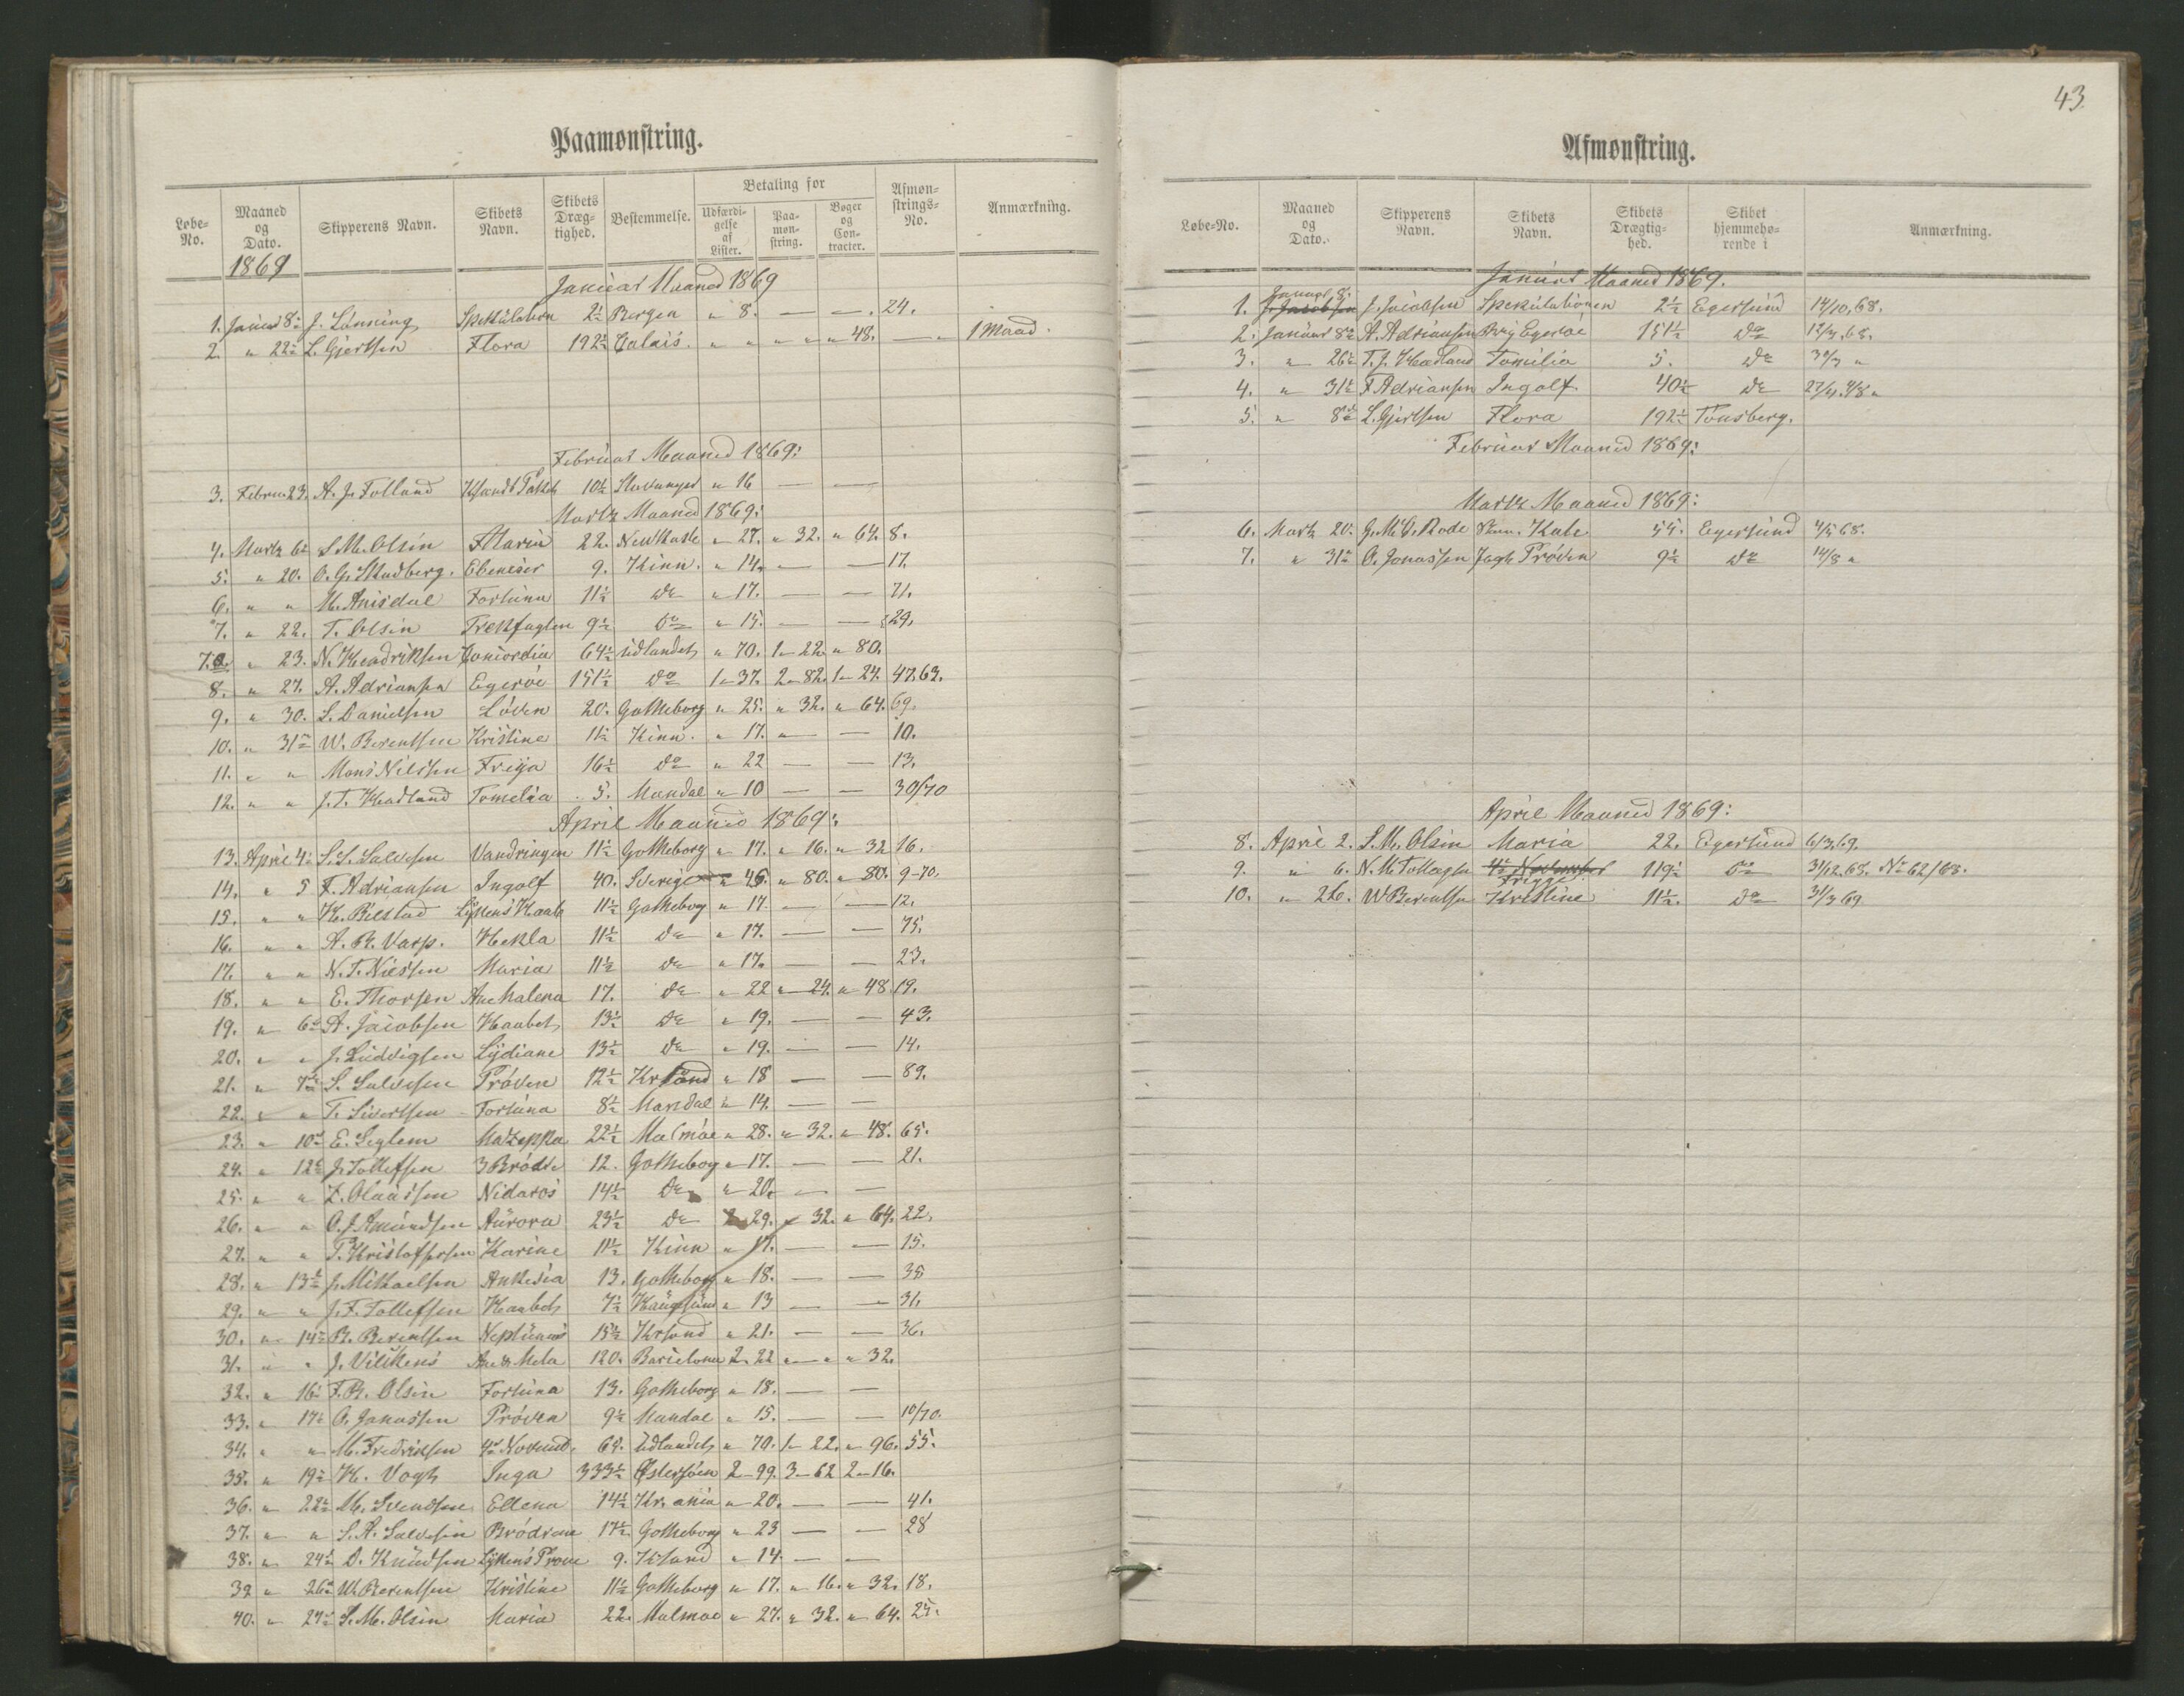 Paamønstring.
Løbe-No. Maaned og Dato. Skipperens Navn. Skibets Navn. Skibets Dræg-tighed. Bestemmelse. Betaling for Udfærdi-gelse af Lister. Paa-møn-string. Bøger og Con-tracter. Afmøn-strings-No. Anmærkning.
1869
Januar Maaned 1869
1. Januar 8de J. Lønning Spekulation 2½ Bergen " 8. — — 24.
2. " 22de L. Gjertsen Flora 192½ Calais. " " " " " 48. — " 1 Maad.
Februar Maaned 1869:
3. Februar 23. A. J. Folland 10½ Stavanger " 16 — —
Martz Maaned 1869:
4. Martz 6te S. M. Olsen Maria 22. Newkastle " 27. " 32. " 64. 8.
5. " 20. O. G. Skadberg. Ebeneser 9. Kinn. " 14. — — 17.
6. " " M. Anisdal Fortuna 11½ do " 17. — — 71.
7. " 22. T. Olsen Trekfuglen 9½ do " 15. — — 29.
7.a. " 23. N. Hendriksen Concordia 64½ Udlandet " 70. 1 " 22. " 80.
8. " 27. A. Adriansen Egerøe 151½ do 1 " 37. 2 " 82. 1 " 24. 47.63.
9. " 30. S. Danielsen Løven 20. Gotheborg " 25. " 32. " 64. 69.
10. " 31te W. Berentsen Kristine 11½ Kinn. " 17. " — — 10.
11. " " Mons Nielsen Freija 16½ do " 22 — — 13.
12. " " J. T. Hadland Tomelia 5. Mandal " 10 — — 30/70
April Maaned 1869:
13. April 4de S. S. Salvesen Vandringen 11½ Gotheborg " 17. " 16. " 32 16.
14. " 5 F. Adriansen Ingolf 40. Sverige " 45. " 80. " 80. 9-70.
15. " " H. Bilstad Lykkens Haab 11½ Gotheborg " 17. — — 12.
16. " " A. B. Varp. Hekla 11½ do " 17. — — 75.
17. " " N. T. Nielsen Maria 11½ do " 17. — — 23.
18. " " E. Thorsen Ane Malena 17. do " 22 " 24. " 48 19.
19. " 6te A. Jacobsen Haabet 13½ do " 19. — — 43.
20. " " J. Ludvigsen Lydiane 13½ do " 19. — — 14.
21. " 7de S. Salvesen Prøven 12½ Krsand " 18 — — 89.
22. " " T. Sivertsen Fortuna 8½ Mandal " 14. — —
23. " 10de E. Seglem Mazeppa 22½ Malmøe " 28. " 32. " 48. 65.
24. " 12te J. Tollefsen 3 Brødre 12. Gotheborg " 17. — — 21.
25. " " Z. Olaussen Nidaros 14½ do " 20. — —
26. " " O. J. Amundsen Aurora 23½ do " 29. " 32. " 64. 22.
27. " " T. Kristoffersen Karine 11½ Kinn " 17. — — 15.
28. " 13de J. Mikaelsen 13. Gotheborg " 18. — — 38
29. " " J. F. Tollefsen Haabet 7½ Haugesund " 13 — — 31.
30. " 14de B. Berentsen Neptunus 15½ Krsand " 21. — — 36.
31. " " J. Vilkens 120. Barselona 2 " 22 " — " " 32.
32. " 16de F. B. Olsen Fortuna 13. Gotheborg " 18. — —
33. " 17de O. Jonassen Prøven 9½ Mandal " 15. — — 10/70.
34. " " M. Fredriksen 4de Novemb. 62. Udlandet " 70. 1 " 22. " 96. 55.
35. " 19de H. Vogt Inga 333½ Østersøen 2 " 99. 3 " 62 2 " 16.
36. " 22de M. Svendsen Ellena 14½ Kr.ania " 20. — — 41.
37. " " S. A. Salvesen Brødrene 17½ Gotheborg " 23 — — 28
38. " 24de D. Knudsen Lykkens Prøve 9. Krsand " 14. — —
39 " 26de W. Berentsen Kristine 11½ Gotheborg " 17. " 16. " 32. 18.
40. " 27de S. M. Olsen Maria 22. Malmoe " 27. " 32. " 64. 25.
43.
Afmønstring.
Løbe-No. Maaned og Dato. Skipperens Navn. Skibets Navn. Skibets Drægtig-hed. Skibet hjemmehø-rende i Anmærkning.
Januar Maaned 1869.
1. Januar 8de J. Jacobsen Spekulationen 2½ Egersund 14/10.68.
2. Januar 8de A. Adriansen Brig Egerøe 151½ do 12/3.68.
3. " 26de T. J. Hadland Tomilia 5. do 30/3 "
4. " 31te F. Adriansen Ingolf 40½ do 27/4.4/8 "
5. " 8de L. Gjertsen Flora 192½ Tønsberg.
Februar Maaned 1869:
Martz Maaned 1869:
6. Martz 20. G. M. C. Rode Skun. Kate 55. Egersund 4/5 68.
7. " 31te O. Jonassen Jagt Prøven 9½ do 14/8 "
April Maaned 1869:
8. April 2. S. M. Olsen Maria 22. Egersund 6/3.69.
9. " 6. N. M. Tollagsen 4de November Frigge 119½ do 31/12.68. No 62/68.
10. " 26. W Berentsen Kristine 11½. do 31/3 69